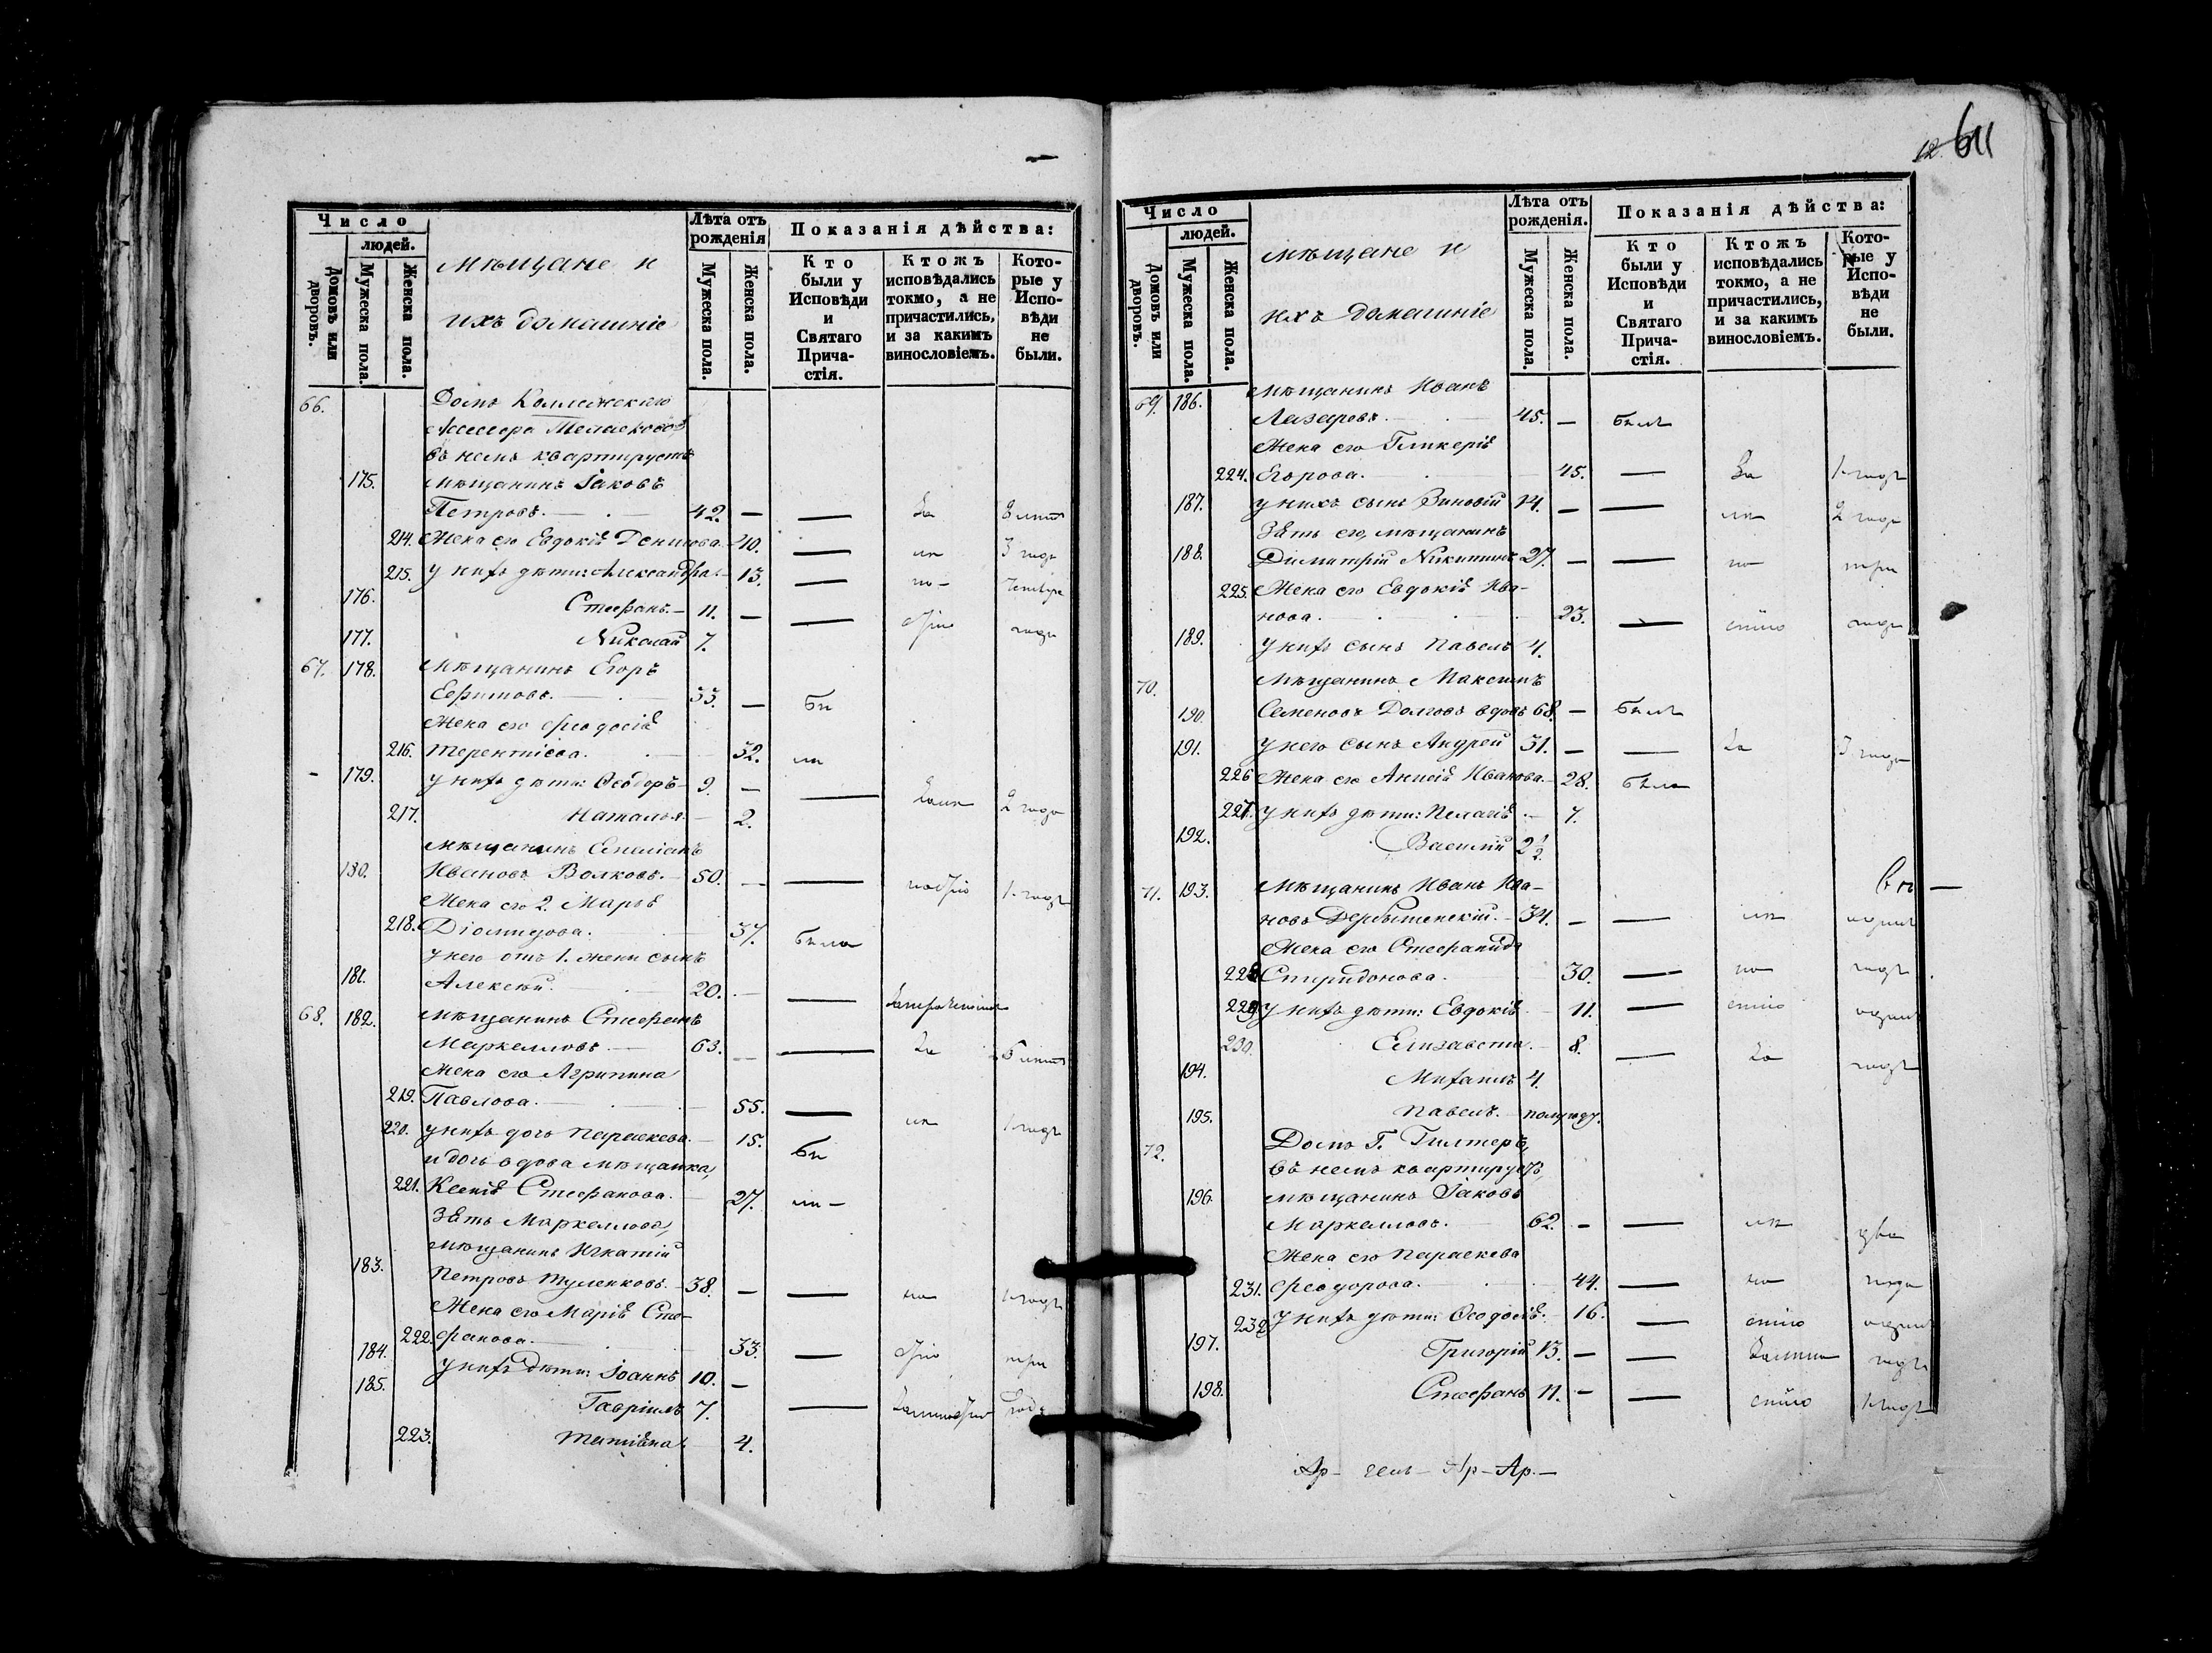 12 611
Число
людей.
Домовъ или дворовъ.
Мужеска пола.
Женска пола.
мѣщане и
ихъ домашніе
Лѣта отъ рожденія
Мужеска пола.
Женска пола.
Показанія дѣйства:
Кто были у Исповѣди и Святаго Причастія.
Ктожъ исповѣдались токмо, а не причастились, и за какимъ винословіемъ.
Которые у Исповѣди не были.
66. Домъ Коллежскаго
Ассесора
въ немъ квартируетъ
175. мѣщанинъ Іаковъ
Петровъ. 42. —
214. Жена его Евдокія Денисова. 40. — 3 года
215. у нихъ дѣти: Александра 13. —
176. Стефанъ. 11. — —
177. Николай 7.
67. 178. Мѣщанинъ Егоръ
Ефимовъ. 33. — Бы
Жена его Феодосія
216. Терентіева. 32. ли
179. у нихъ дѣти: Ѳеодоръ 9. — — 2 года
217. Наталья 2.
мѣщанинъ Емеліанъ
180. Ивановъ Волковъ. 50. — — 1 годъ
Жена его 2. Марья
218. Діомидова. 37. Была
у него отъ 1. жены сынъ
181. Алексѣй. 20. — —
68. 182. мѣщанинъ Стефанъ
Маркелловъ 63. — — За 5 лѣтъ
Жена его Агрипина
219. Павлова. 55. — 1 годъ
220. у нихъ дочь Параскева. 15. Бы
и дочь вдова мѣщанка,
221. Ксенія Стефанова. 27. ли —
Зять Маркеллова,
мѣщанинъ Игнатій
183. Петровъ Туленковъ. 38. — — 1 годъ
Жена его Марія Сте-
222. фанова. 33. — три
184. у нихъ дѣти: Іоаннъ 10. —
185. Гавріилъ 7. —
223. Татіана 4.
Число
людей.
Домовъ или дворовъ.
Мужеска пола.
Женска пола.
мѣщане и
ихъ домашніе
Лѣта отъ рожденія.
Мужеска пола.
Женска пола.
Показанія дѣйства:
Кто были у Исповѣди и Святаго Причастія.
Ктожъ исповѣдались токмо, а не причастились, и за какимъ винословіемъ.
Которые у Исповѣди не были.
69. 186. мѣщанинъ Иванъ
Лазаровъ. 45. — Былъ
Жена его Гликерія
224. Егорова. 45. — За 1 годъ
187. у нихъ сынъ Зиновій 14. — — 2 года
Зять его, мѣщанинъ
188. Димитрій Никитинъ 27. — — по три
225. Жена его Евдокія Ива-
нова. 23. — года
189. у нихъ сынъ Павелъ 4.
70. Мѣщанинъ Максимъ
190. Семеновъ Долговъ вдовъ 68. — Былъ
191. у него сынъ Андрей 31. — — За 3 года
226 Жена его Анисія Иванова. 28. Была
227. у нихъ дѣти: Пелагія 7.
192. Василій 2 1/2.
71. 193. Мѣщанинъ Иванъ Ива-
новъ Дербышенскій. 34. — —
Жена его Стефанида
228 Спиридонова. 30. — по годъ
229 у нихъ дѣти: Евдокія 11. —
230. Елизавета. 8. — За годъ
194. Михаилъ 4.
195. Павелъ. полугоду.
72. Домъ Г. Гилтеръ,
въ немъ квартируетъ,
196. мѣщанинъ Іаковъ
Маркелловъ. 62. — — два
Жена его Параскева
231. Феодорова. 44. — по года
232 у нихъ дѣти: Ѳеодосія. 16. —
197. Григорій 13. — — годъ
198. Стефанъ 11. — — 1 годъ